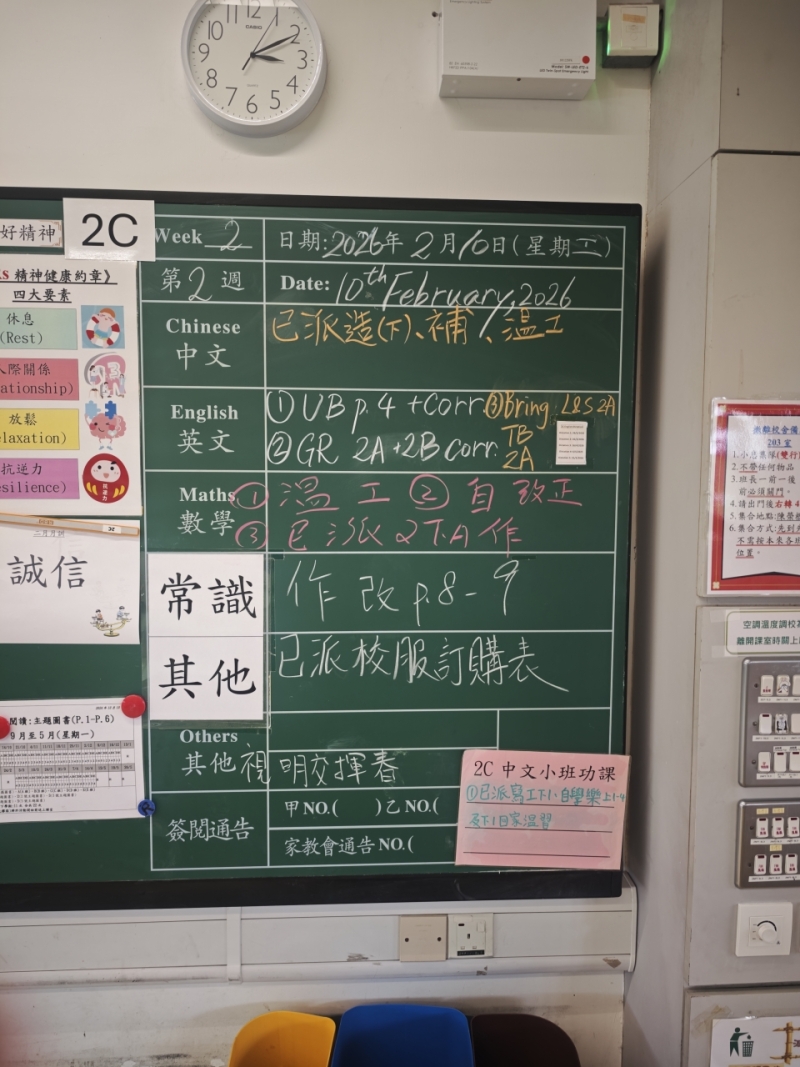 12 1 2 3 4 5 6 7 8 9 10 11
CASIO
好精神
2C
Week 2
日期:2026年2月10日(星期二)
第2週
Date: 10th February, 2026
S 精神健康約章》
四大要素
休息
(Rest)
人際關係
ationship)
放鬆
elaxation)
抗逆力
esilience)
抗逆力
Chinese
中文
已派造(下)、補、溫工
English
英文
① UB p.4 + Corr.
③ Bring L&S 2A
TB
2A
② GR 2A+2B corr.
Maths
數學
① 溫工 ② 自改正
③ 已派2下A作
誠信
常識
作改 p.8-9
其他
已派校服訂購表
閱讀:主題圖書(P.1~P.6)
9月至5月(星期一)
Others
其他
視 明交揮春
簽閱通告
甲NO.( )乙NO.(
家教會通告NO.(
2C 中文小班功課
①已派寫工下1、自學樂上1-4
及下1日家溫習
203室
1.小
2.不帶任何物品
3.班長一前一後
前必須關門。
4.請出門後右轉4
5.集合地點:陳榮
6.集合方式:先到
不需按本來各班
位置。
空調溫度調校為
離開課室時關上